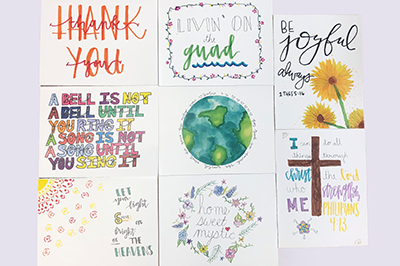 THANK
thank
YOU
you
LIVIN' ON
the
guad
BE
joyful
always
1 THESS 5:16
A BELL IS NOT
A BELL UNTIL
YOU RING IT
A SONG IS NOT
A SONG UNTIL
YOU SING IT
I can do all
things through
christ the Lord
who strengthens
ME PHILIPPIANS
4:13
LET
your light
as
Bright
as THE
HEAVENS
home
sweet
mystic